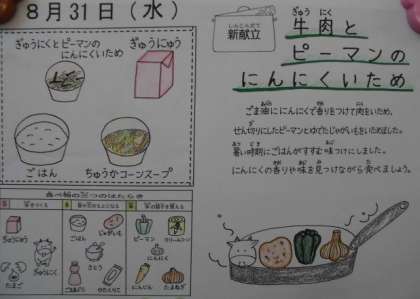 8月31日(水)
ぎゅうにくとピーマンの
にんにくいため
ぎゅうにゅう
ごはん
ちゅうかコーンスープ
しんこんだて
新献立
ぎゅう にく
牛肉と
ピーマンの
にんにくいため
ごま油ににんにくで香りをつけて肉をいため、
せん切りにしたピーマンとゆでたじゃがいもをいためました。
暑い時期にごはんがすすむ味つけにしました。
にんにくの香りや味を見つけながら食べましょう。
食べ物の三つのはたらき
ぎゅうにゅう
ぎゅうにく
たまご
ごはん
じゃがいも
さとう
かたくりこ
ピーマン
クリームコーン
にんにく
にんじん
たまねぎ